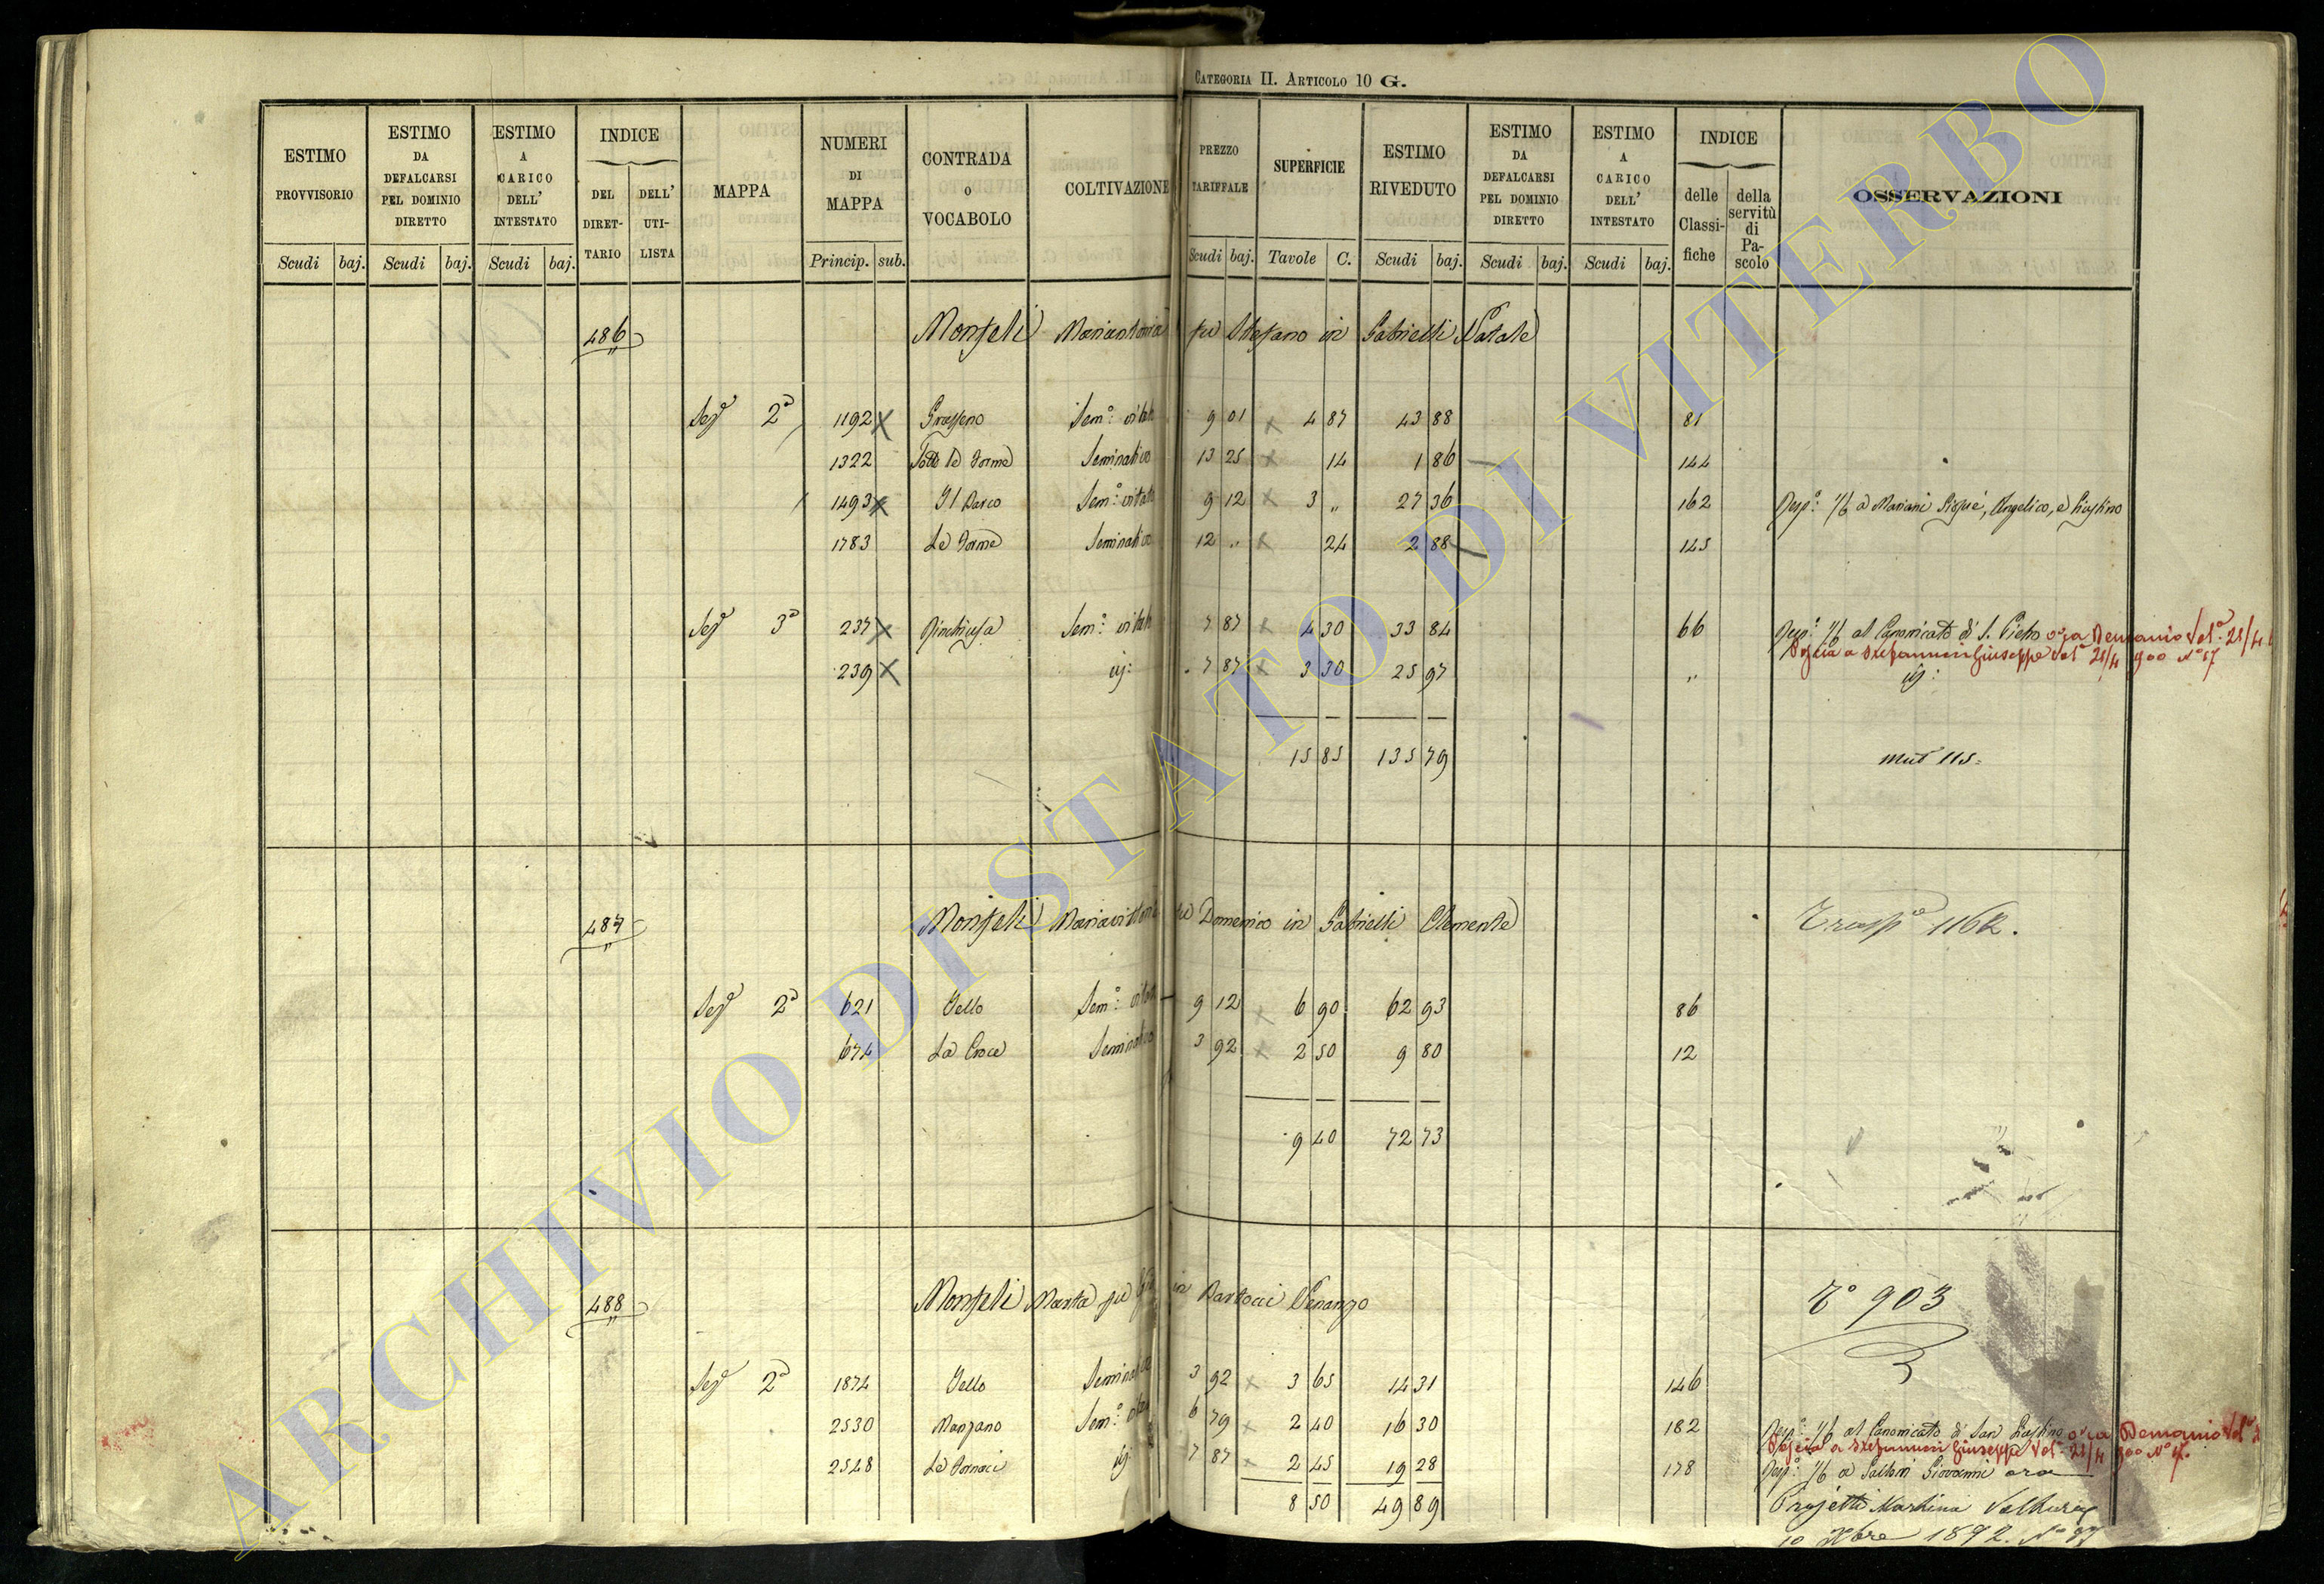 CATEGORIA II. ARTICOLO 10 G.
ESTIMO PROVVISORIO Scudi baj.
ESTIMO DA DEFALCARSI PEL DOMINIO DIRETTO Scudi baj.
ESTIMO A CARICO DELL' INTESTATO Scudi baj.
INDICE DEL DIRETTARIO DELL' UTILISTA
MAPPA
NUMERI DI MAPPA Princip. sub.
CONTRADA O VOCABOLO
COLTIVAZIONE
PREZZO TARIFFALE Scudi baj.
SUPERFICIE Tavole C.
ESTIMO RIVEDUTO Scudi baj.
ESTIMO DA DEFALCARSI PEL DOMINIO DIRETTO Scudi baj.
ESTIMO A CARICO DELL' INTESTATO Scudi baj.
INDICE delle Classifiche della servitù di Pascolo
OSSERVAZIONI
486 Monfeli Mariantonia fu Stefano in Gabrielli Natale
Sez 2a 1192 x Sem: vitato 9 01 x 4 87 43 88 81
1322 Le Forme Seminativo 13 25 x 14 1 86 144
1493 x Il Barco Sem: vitato 9 12 x 3 " 27 36 162 Risp: 1/6 a Mariani Angelico, e Giustino
1783 Le Forme Seminativo 12 " x 24 2 88 145
Sez 3a 237 x Sem: vitato 7 87 x 4 30 33 84 66 Risp: 1/6 al Canonicato di S. Pietro ora Demanio Vol. 21/4
a Giuseppe Vol 21/4 900 No 57
239 x 7 87 x 3 30 25 97 "
15 85 135 79 mut 115
487 Monfeli Mariavittoria fu Domenico in Gabrielli Clemente Trasp 1162.
Sez 2a 621 Vello Sem: vitato 9 12 x 6 90 62 93 86
674 La Croce Seminativo 3 92 x 2 50 9 80 12
9 40 72 73
488 Monfeli Marta fu in Bartocci Venanzo To 903
Sez 2a 1874 Vello Seminativo 3 92 x 3 65 14 31 146
2530 Manzano Sem: 6 79 x 2 40 16 30 182 Risp: 1/6 al Canonicato di San Giustino ora Demanio Vol
a Giuseppe Vol 21/4 900 No
2548 Le Fornaci 7 87 x 2 45 19 28 178 Risp: 1/6 a Giovanni ora
8 50 49 89 Projetti Martina Voltura
10 Xbre 1892. No
ARCHIVIO DI STATO DI VITERBO